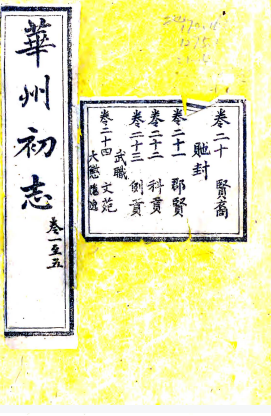 華州初志
卷一至五
卷二十 賢裔
貤封
卷二十一 郡賢
卷二十二 科貢
卷二十三 例貢
武職
卷二十四 文苑